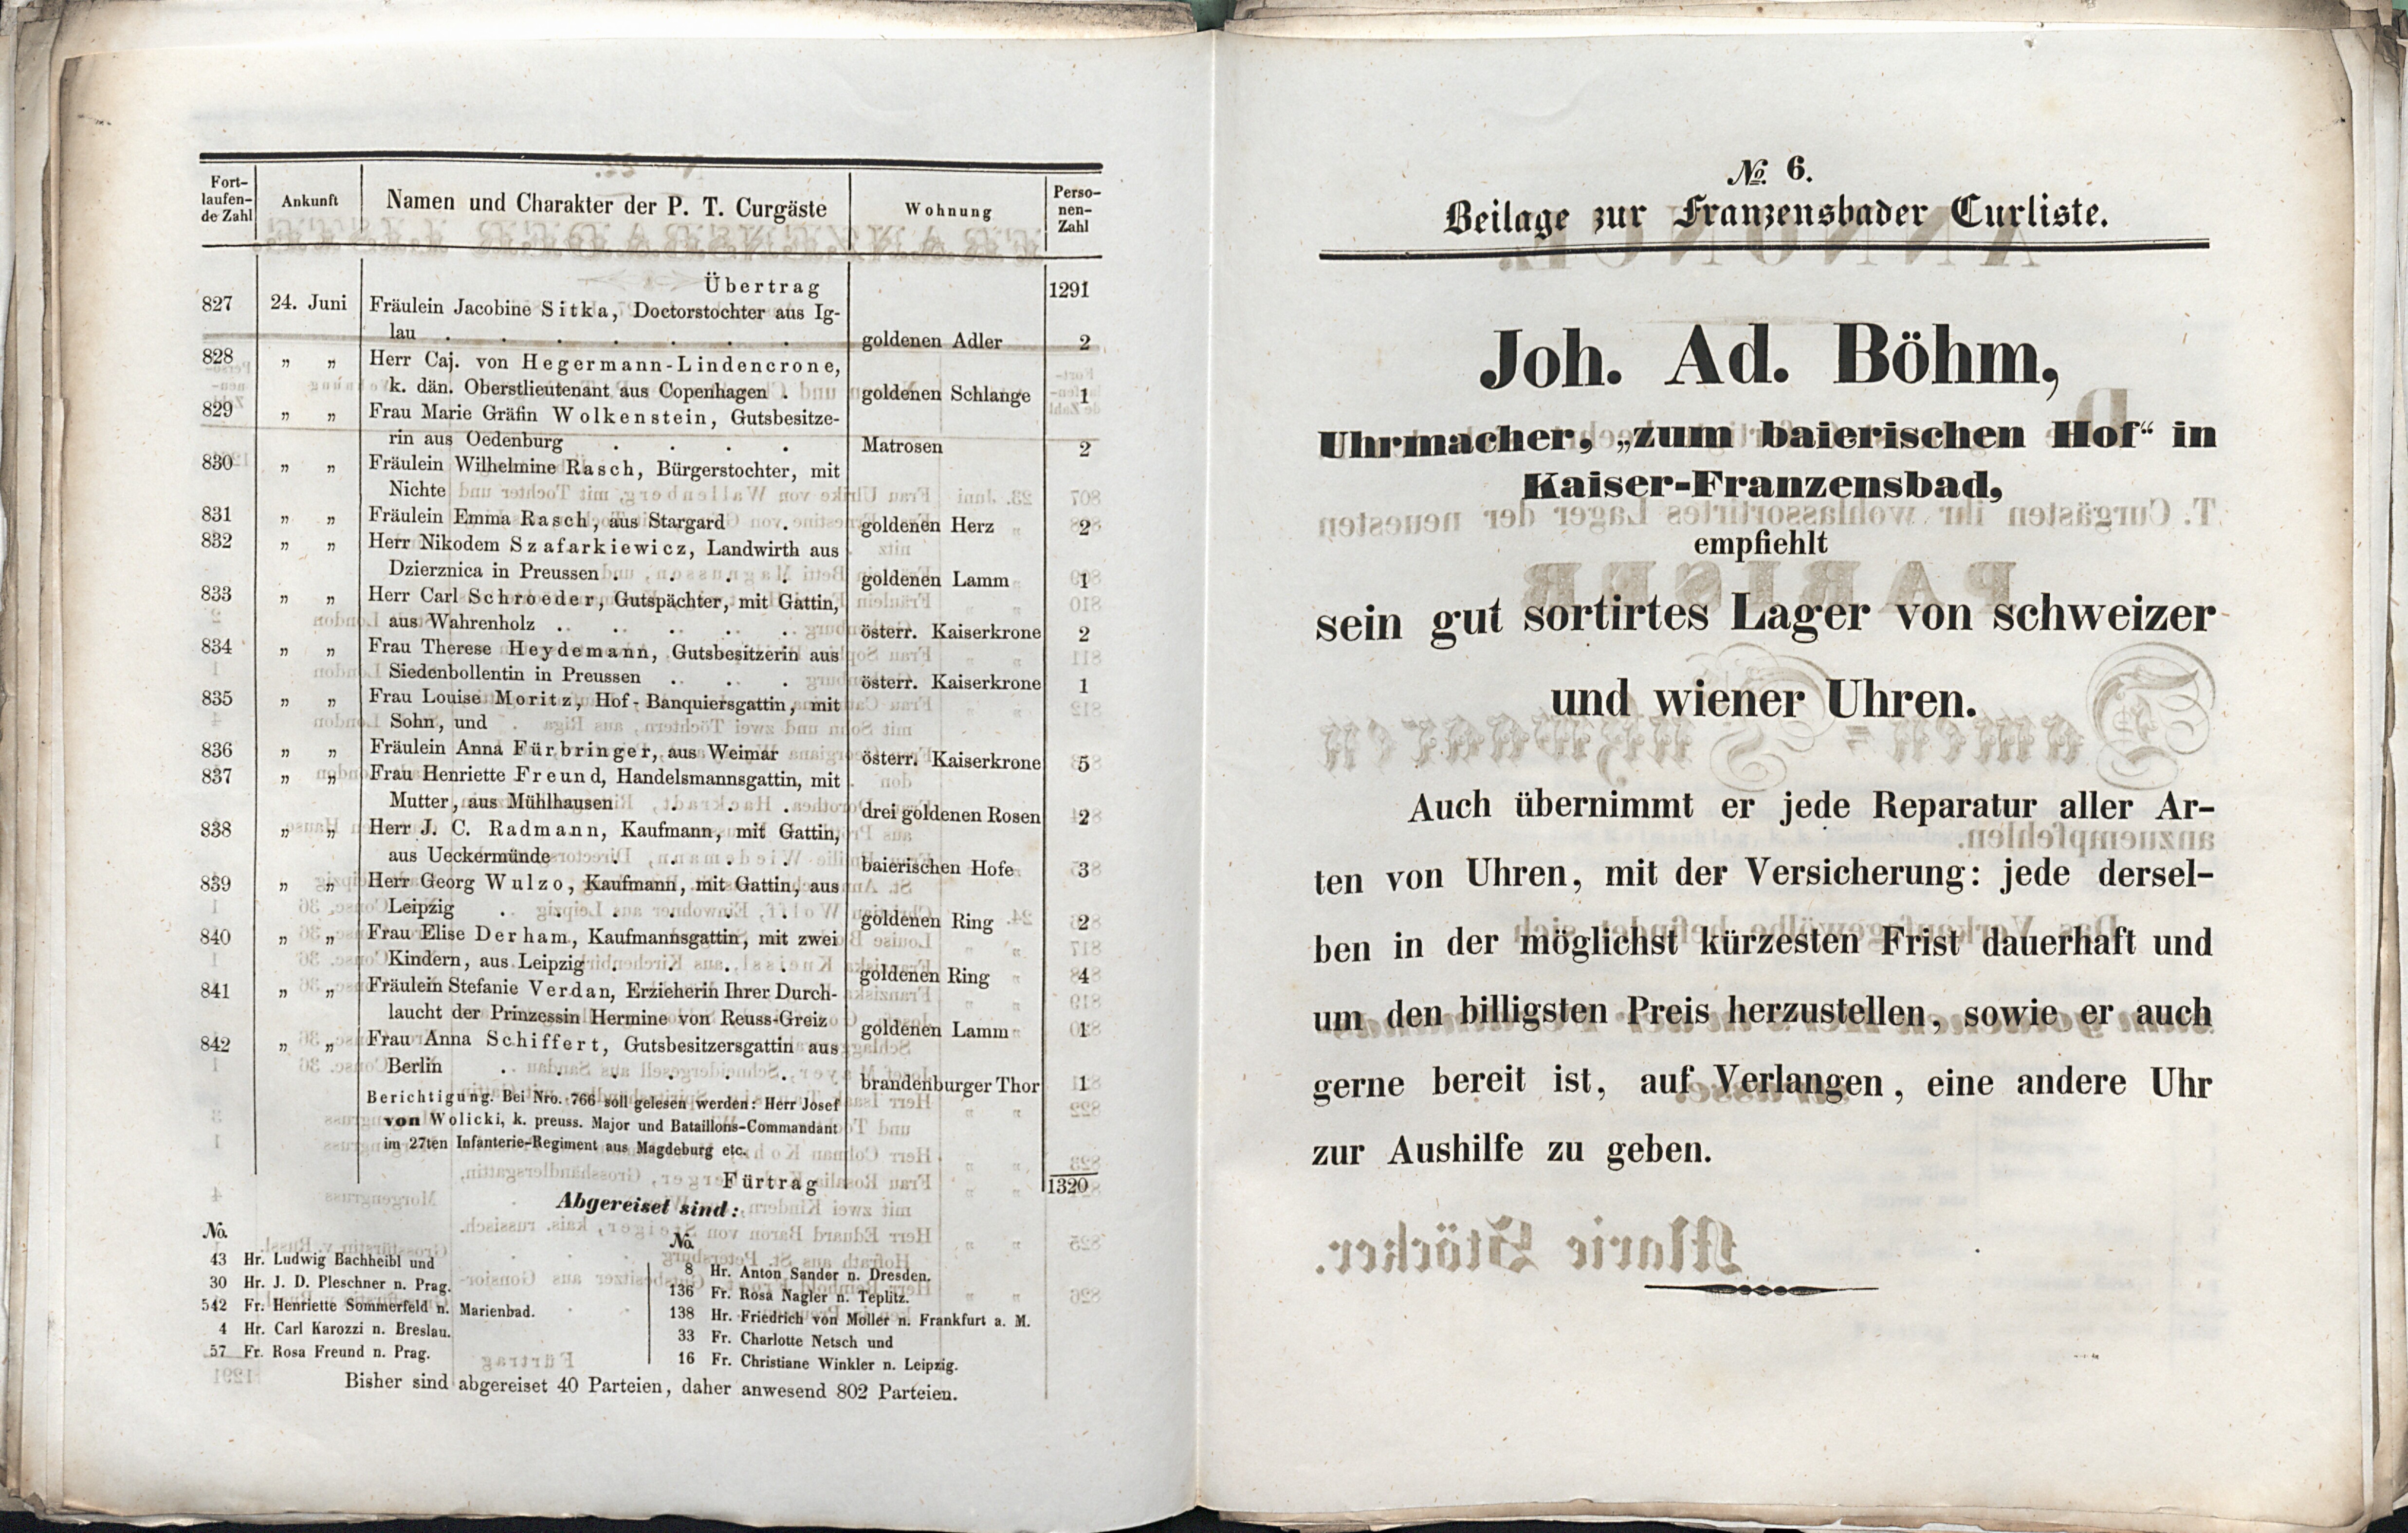 Fort-
laufen-
de Zahl
Ankunft
Namen und Charakter der P. T. Curgäste
Wohnung
Perso-
nen-
Zahl
Übertrag 1291
827 24. Juni Fräulein Jacobine Sitka, Doctorstochter aus Ig-
lau . . . . . . . goldenen Adler 2
828 „ „ Herr Caj. von Hegermann-Lindencrone,
k. dän. Oberstlieutenant aus Copenhagen . goldenen Schlange 1
829 „ „ Frau Marie Gräfin Wolkenstein, Gutsbesitze-
rin aus Oedenburg . . . . Matrosen 2
830 „ „ Fräulein Wilhelmine Rasch, Bürgerstochter, mit
Nichte
831 „ „ Fräulein Emma Rasch, aus Stargard . goldenen Herz 2
832 „ „ Herr Nikodem Szafarkiewicz, Landwirth aus
Dzierznica in Preussen . . . . goldenen Lamm 1
833 „ „ Herr Carl Schroeder, Gutspächter, mit Gattin,
aus Wahrenholz . . . . . österr. Kaiserkrone 2
834 „ „ Frau Therese Heydemann, Gutsbesitzerin aus
Siedenbollentin in Preussen . . . österr. Kaiserkrone 1
835 „ „ Frau Louise Moritz, Hof-Banquiersgattin, mit
Sohn, und
836 „ „ Fräulein Anna Fürbringer, aus Weimar österr. Kaiserkrone 5
837 „ „ Frau Henriette Freund, Handelsmannsgattin, mit
Mutter, aus Mühlhausen . . . drei goldenen Rosen 2
838 „ „ Herr J. C. Radmann, Kaufmann, mit Gattin,
aus Ueckermünde . . . . baierischen Hofe 3
839 „ „ Herr Georg Wulzo, Kaufmann, mit Gattin, aus
Leipzig . . . . . . goldenen Ring 2
840 „ „ Frau Elise Derham, Kaufmannsgattin, mit zwei
Kindern, aus Leipzig . . . . goldenen Ring 4
841 „ „ Fräulein Stefanie Verdan, Erzieherin Ihrer Durch-
laucht der Prinzessin Hermine von Reuss-Greiz goldenen Lamm 1
842 „ „ Frau Anna Schiffert, Gutsbesitzersgattin aus
Berlin . . . . . . brandenburger Thor 1
Berichtigung. Bei Nro. 766 soll gelesen werden: Herr Josef
von Wolicki, k. preuss. Major und Bataillons-Commandant
im 27ten Infanterie-Regiment aus Magdeburg etc.
Fürtrag 1320
Abgereiset sind:
No.
43 Hr. Ludwig Bachheibl und
30 Hr. J. D. Pleschner n. Prag.
542 Fr. Henriette Sommerfeld n. Marienbad.
4 Hr. Carl Karozzi n. Breslau.
57 Fr. Rosa Freund n. Prag.
No.
8 Hr. Anton Sander n. Dresden.
136 Fr. Rosa Nagler n. Teplitz.
138 Hr. Friedrich von Moller n. Frankfurt a. M.
33 Fr. Charlotte Netsch und
16 Fr. Christiane Winkler n. Leipzig.
Bisher sind abgereiset 40 Parteien, daher anwesend 802 Parteien.
No. 6.
Beilage zur Franzensbader Curliste.
Joh. Ad. Böhm,
Uhrmacher, „zum baierischen Hof“ in
Kaiser-Franzensbad,
empfiehlt
sein gut sortirtes Lager von schweizer
und wiener Uhren.
Auch übernimmt er jede Reparatur aller Ar-
ten von Uhren, mit der Versicherung: jede dersel-
ben in der möglichst kürzesten Frist dauerhaft und
um den billigsten Preis herzustellen, sowie er auch
gerne bereit ist, auf Verlangen, eine andere Uhr
zur Aushilfe zu geben.